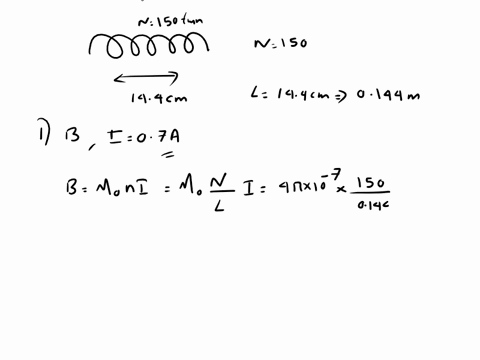 N=150 turn
N=150
14.4cm
L= 14.4cm => 0.144m
1) B, I=0.7A
B= M₀nI = M₀ N/L I = 4π×10⁻⁷ × 150/0.14